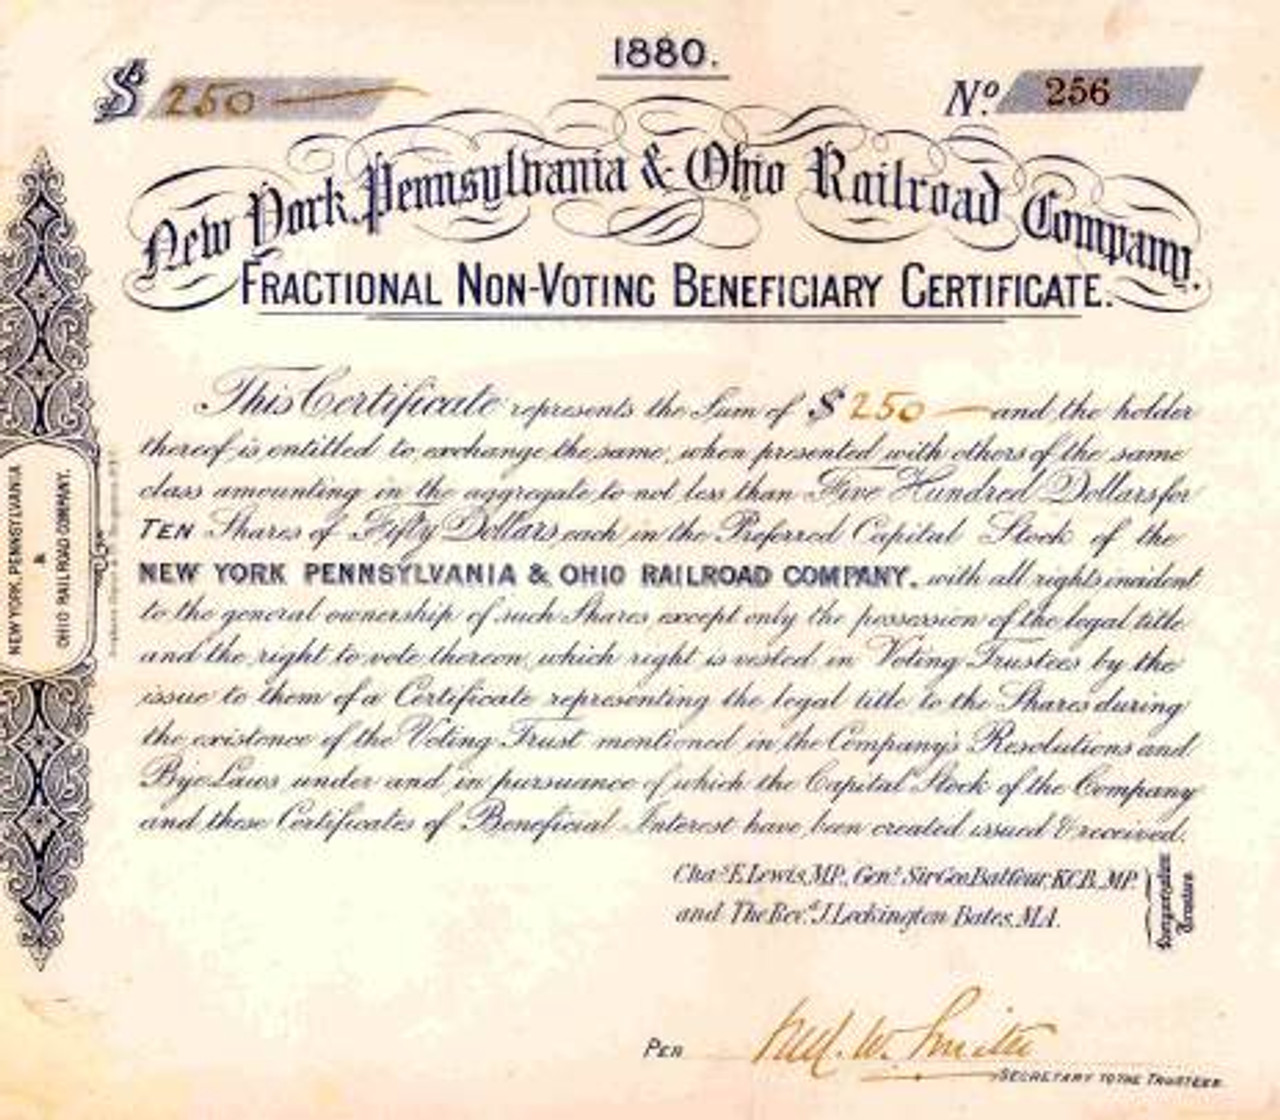 1880.
$ 250
No. 256
New York, Pennsylvania & Ohio Railroad Company.
FRACTIONAL NON-VOTING BENEFICIARY CERTIFICATE.
This Certificate represents the Sum of $ 250 and the holder
thereof is entitled to exchange the same, when presented with others of the same
class amounting in the aggregate to not less than Five Hundred Dollars for
TEN Shares of Fifty Dollars each in the Preferred Capital Stock of the
NEW YORK PENNSYLVANIA & OHIO RAILROAD COMPANY, with all rights incident
to the general ownership of such Shares except only the possession of the legal title
and the right to vote thereon, which right is vested in Voting Trustees by the
issue to them of a Certificate representing the legal title to the Shares during
the existence of the Voting Trust mentioned in the Company's Resolutions and
Bye Laws under and in pursuance of which the Capital Stock of the Company
and these Certificates of Beneficial Interest have been created issued & received.
Chas. E. Lewis, MP., Genl. Sir Geo. Balfour, KCB, MP.
and The Revd. J. Leckington Bates, MA.
Reorganization Trustees
PER W. Smith
SECRETARY TO THE TRUSTEES.
NEW YORK, PENNSYLVANIA
&
OHIO RAILROAD COMPANY.